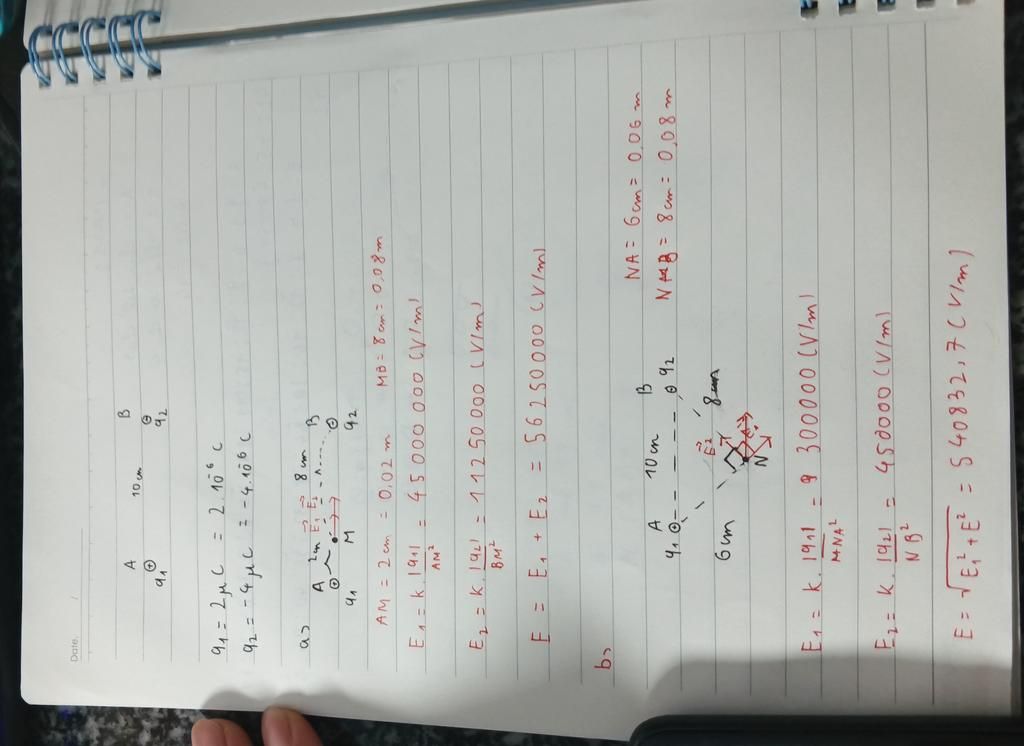 Date. /
A 10cm B
⊕ ⊖
q1 q2
q1 = 2μC = 2.10⁻⁶ C
q2 = -4μC = -4.10⁻⁶ C
a>
A 2cm E1 E2 8cm B
⊕ ⊖
q1 M q2
AM = 2cm = 0,02m MB = 8cm = 0,08m
E1 = k.|q1|/AM² = 45000000 (V/m)
E2 = k.|q2|/BM² = 11250000 (V/m)
E = E1 + E2 = 56250000 (V/m)
b>
NA = 6cm = 0,06m
A 10cm B
q1 ⊕ ⊖ q2
= 8cm = 0,08m
6cm E2 8cm
N
E1 = k.|q1|/NA² = 300000 (V/m)
E2 = k.|q2|/NB² = 450000 (V/m)
E = √E1² + E² = 540832,7 (V/m)